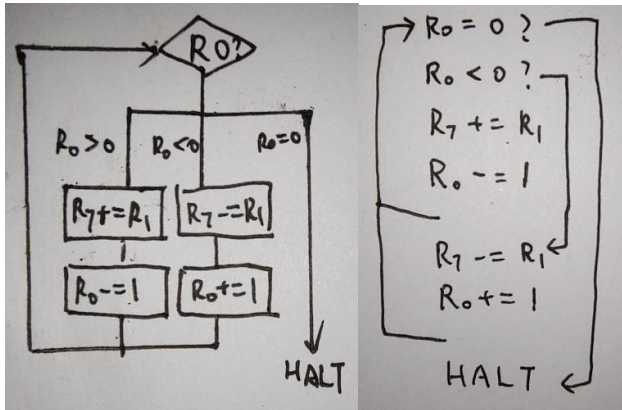 R0?
R0>0 R0<0 R0=0
R7+=R1 R7-=R1
R0-=1 R0+=1
HALT
R0 = 0 ?
R0 < 0 ?
R7 += R1
R0 -= 1
R7 -= R1
R0 += 1
HALT